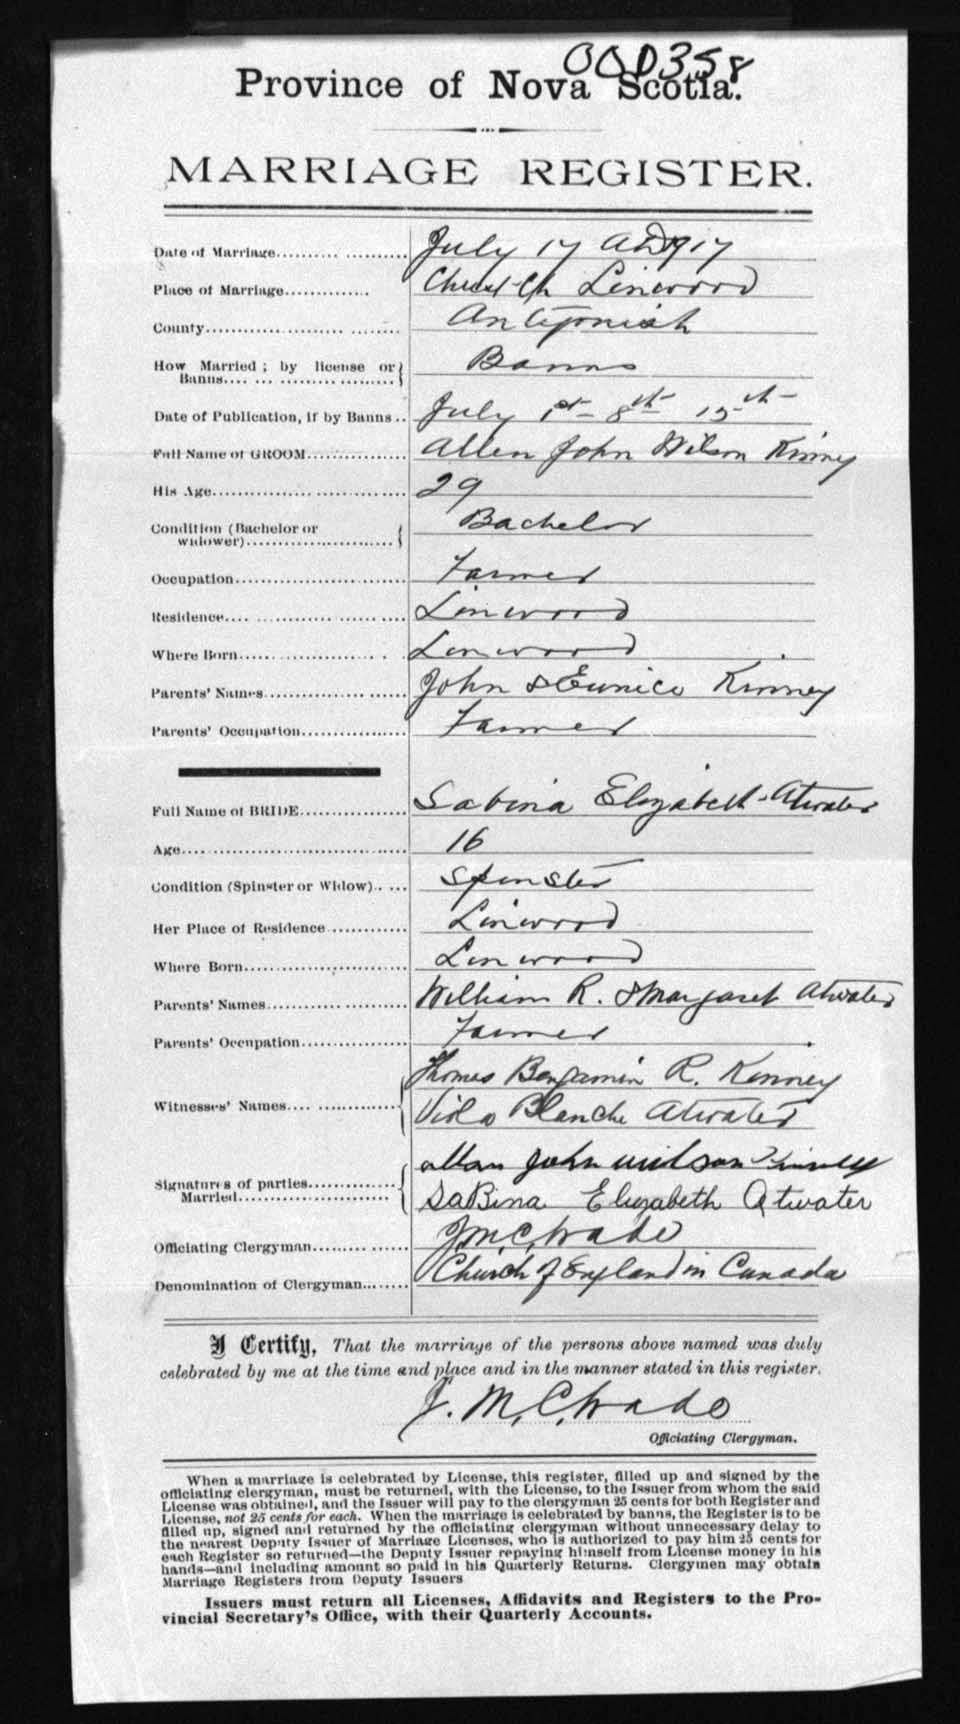 000358
Province of Nova Scotia.
MARRIAGE REGISTER.
Date of Marriage.................... July 17 AD 1917
Place of Marriage.............. Christ Ch Linwood
County............................ Antigonish
How Married ; by license or Banns
Banns...........................
Date of Publication, if by Banns.. July 1st 8th 15th
Full Name of GROOM............... Allen John Wilson Kinney
His Age............................ 29
Condition (Bachelor or Bachelor
widower)........................
Occupation......................... Farmer
Residence.......................... Linwood
Where Born........................ Linwood
Parents' Names..................... John & Eunice Kinney
Parents' Occupation................ Farmer
Full Name of BRIDE................ Sabina Elizabeth Atwater
Age................................ 16
Condition (Spinster or Widow)..... Spinster
Her Place of Residence............ Linwood
Where Born........................ Linwood
Parents' Names..................... William R. & Margaret Atwater
Parents' Occupation................ Farmer
Thomas Benjamin R. Kinney
Witnesses' Names..................
Viola Blanche Atwater
allan john wilson Kinney
Signatures of parties..............
Married........................
SaBina Elizabeth Atwater
Officiating Clergyman.............. J. M. C. Wade
Denomination of Clergyman....... Church of England in Canada
I Certify, That the marriage of the persons above named was duly
celebrated by me at the time and place and in the manner stated in this register.
J. M. C. Wade
Officiating Clergyman.
When a marriage is celebrated by License, this register, filled up and signed by the
officiating clergyman, must be returned, with the License, to the Issuer from whom the said
License was obtained, and the Issuer will pay to the clergyman 25 cents for both Register and
License, not 25 cents for each. When the marriage is celebrated by banns, the Register is to be
filled up, signed and returned by the officiating clergyman without unnecessary delay to
the nearest Deputy Issuer of Marriage Licenses, who is authorized to pay him 25 cents for
each Register so returned—the Deputy Issuer repaying himself from License money in his
hands—and including amount so paid in his Quarterly Returns. Clergymen may obtain
Marriage Registers from Deputy Issuers
Issuers must return all Licenses, Affidavits and Registers to the Pro-
vincial Secretary's Office, with their Quarterly Accounts.